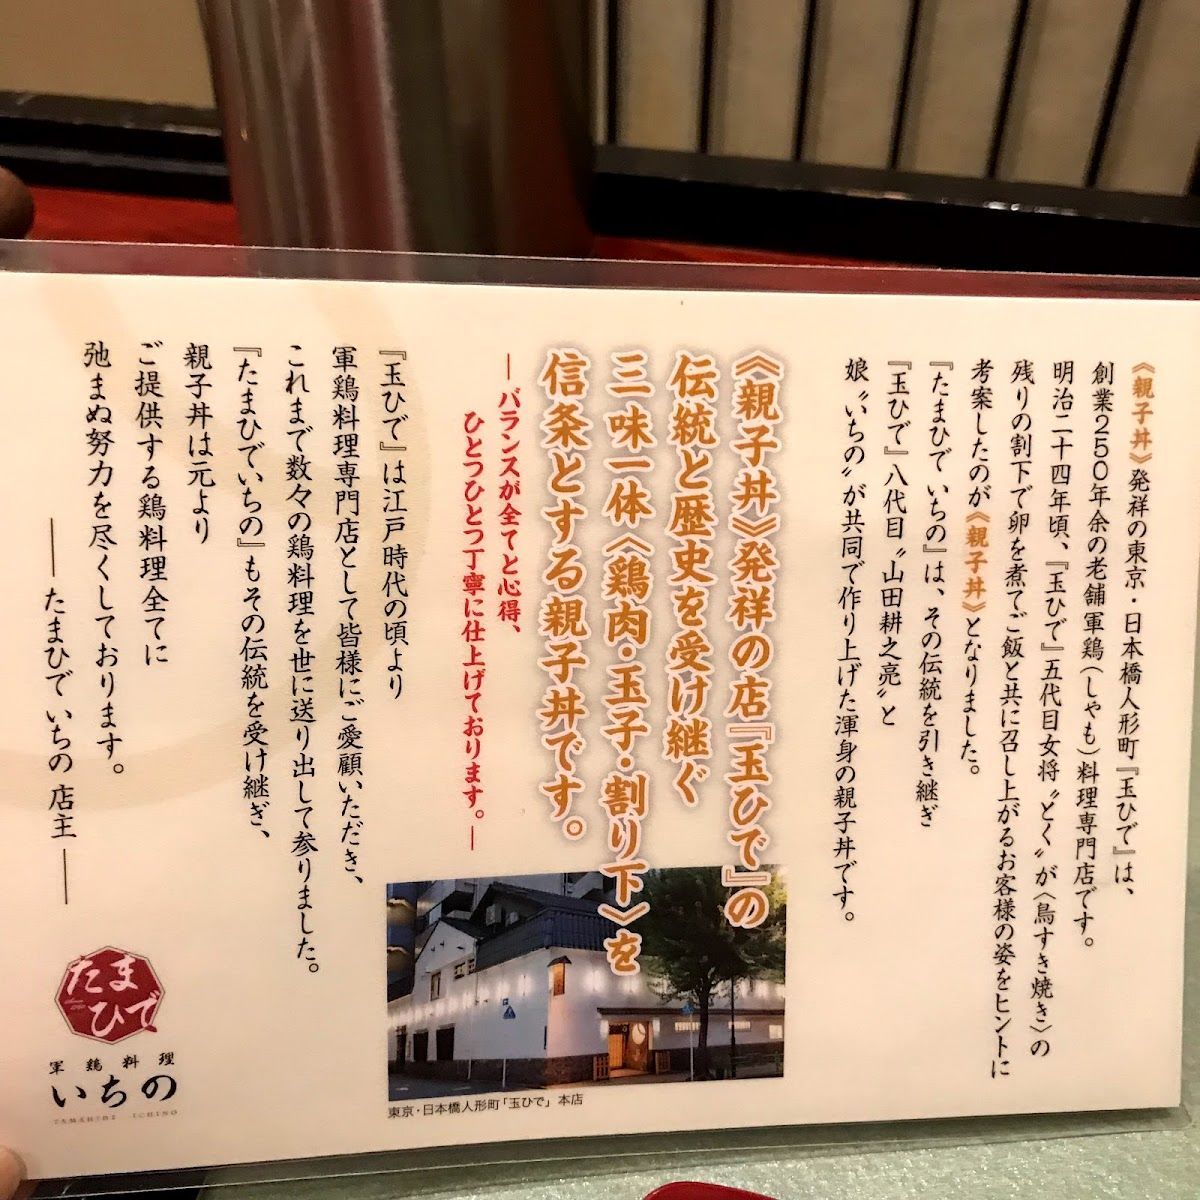 《親子丼》発祥の東京・日本橋人形町『玉ひで』は、
創業250年余の老舗軍鶏(しゃも)料理専門店です。
明治二十四年頃、『玉ひで』五代目女将〝とく〟が〈鳥すき焼き〉の
残りの割下で卵を煮てご飯と共に召し上がるお客様の姿をヒントに
考案したのが《親子丼》となりました。
『たまひで いちの』は、その伝統を引き継ぎ
『玉ひで』八代目〝山田耕之亮〟と
娘〝いちの〟が共同で作り上げた渾身の親子丼です。
《親子丼》発祥の店『玉ひで』の
伝統と歴史を受け継ぐ
三味一体〈鶏肉・玉子・割り下〉を
信条とする親子丼です。
―バランスが全てと心得、
ひとつひとつ丁寧に仕上げております。―
『玉ひで』は江戸時代の頃より
軍鶏料理専門店として皆様にご愛顧いただき、
これまで数々の鶏料理を世に送り出して参りました。
『たまひでいちの』もその伝統を受け継ぎ、
親子丼は元より
ご提供する鶏料理全てに
弛まぬ努力を尽くしております。
――たまひで いちの 店主――
東京・日本橋人形町「玉ひで」本店
たま
ひで
軍鶏料理
いちの
TAMAHIDE ICHINO